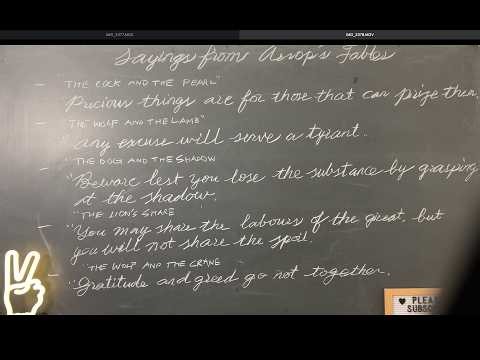 IMG_3377.MOV
IMG_3378.MOV
Sayings from Aesop's Fables
— "THE COCK AND THE PEARL"
Precious things are for those that can prize them.
— "THE "WOLF AND THE LAMB"
"any excuse will serve a tyrant.
— "THE DOG AND THE SHADOW
"Beware lest you lose the substance by grasping
at the shadow.
— "THE LION'S SHARE
"You may share the labours of the great, but
you will not share the spoil.
— "THE WOLF AND THE CRANE
"Gratitude and greed go not together.
♥ PLEA
SUBSC